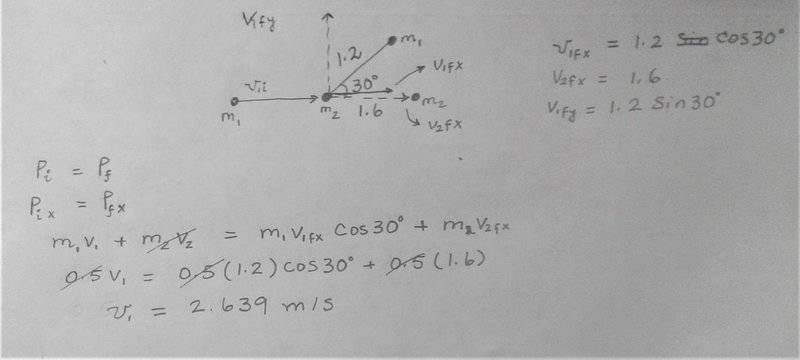 V1fy
1.2
m1
30°
V1fx
v1i
m1
m2
1.6
m2
v2fx
v1fx = 1.2 Sin COS30°
V2fx = 1.6
V1fy = 1.2 Sin30°
Pi = Pf
Pix = Pfx
m1V1 + m2V2 = m1V1fx COS30° + m2V2fx
0.5V1 = 0.5(1.2)COS30° + 0.5(1.6)
v1 = 2.639 m/s